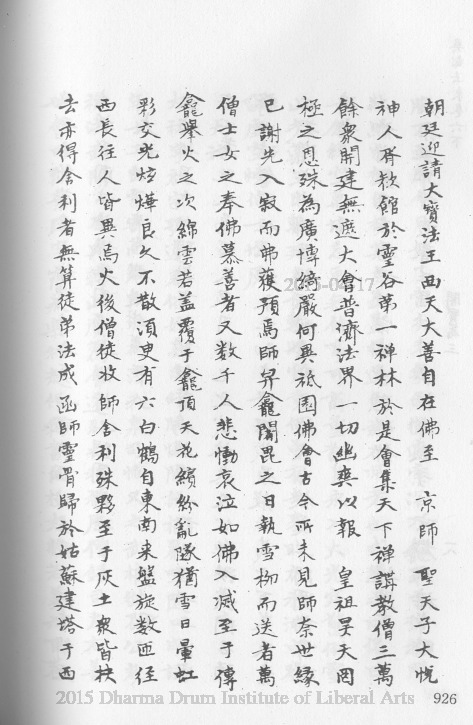 朝廷迎請大寶法王西天大善自在佛至 京師 聖天子大悅
神人胥欽館於靈谷第一禪林於是會集天下禪講教僧三萬
餘眾開建無遮大會普濟法界一切幽爽以報 皇祖昊天罔
極之恩殊為廣博綺嚴何異祇園佛會古今所未見師奈世緣
已謝先入寂而弗獲預焉師舁龕闍毘之日執雪柳而送者萬
僧士女之奉佛慕善者又數千人悲慟哀泣如佛入滅至于傳
龕舉火之次綿雲若盖覆于龕頂天花繽紛亂墜猶雪日暈虹
彩交光炫燁良久不散須臾有六白鶴自東南来盤旋数匝徑
西長往人皆異焉火後僧徒收師舍利殊夥至于灰土眾皆扶
去亦得舍利者無算徒弟法成函師靈骨歸於姑蘇建塔于西
2015-04-17
2015 Dharma Drum Institute of Liberal Arts
926